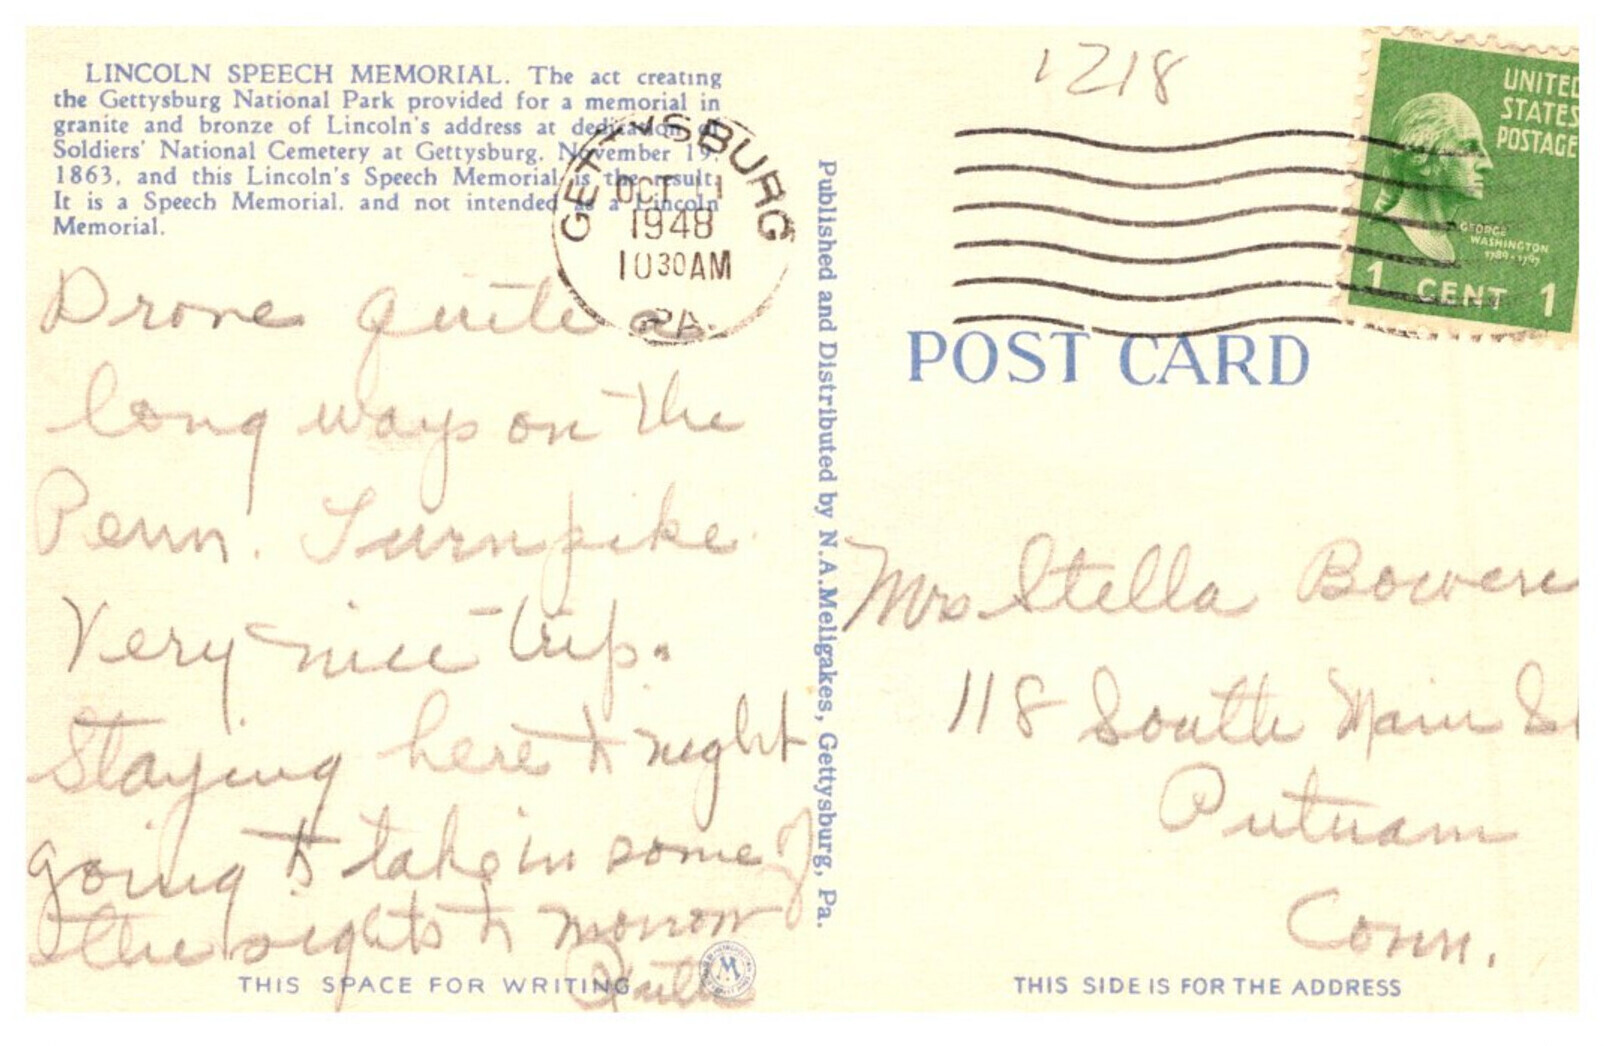 LINCOLN SPEECH MEMORIAL. The act creating
the Gettysburg National Park provided for a memorial in
granite and bronze of Lincoln's address at dedication of
Soldiers' National Cemetery at Gettysburg. November 19.
1863, and this Lincoln's Speech Memorial is the result.
It is a Speech Memorial. and not intended as a Lincoln
Memorial.
GETTYSBURG
OCT 11
1948
1030AM
PA.
Drove quite a
long ways on the
Penn. Turnpike
Very nice trip.
Staying here to night
going to take in some of
the sights to morrow
THIS SPACE FOR WRITING
M
Published and Distributed by N.A.Meligakes, Gettysburg, Pa.
1218
UNITED
STATES
POSTAGE
GEORGE
WASHINGTON
1789-1797
1 CENT 1
POST CARD
Mrs Stella Bowen
118 South Main St
Putnam
Conn.
THIS SIDE IS FOR THE ADDRESS